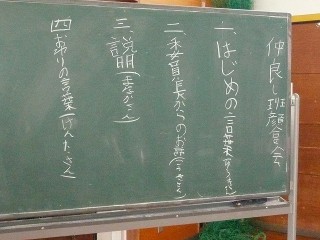 仲良し班顔合会
一、はじめの言葉
二、委員長からのお話
三、説明
四、おわりの言葉(けんたさん)